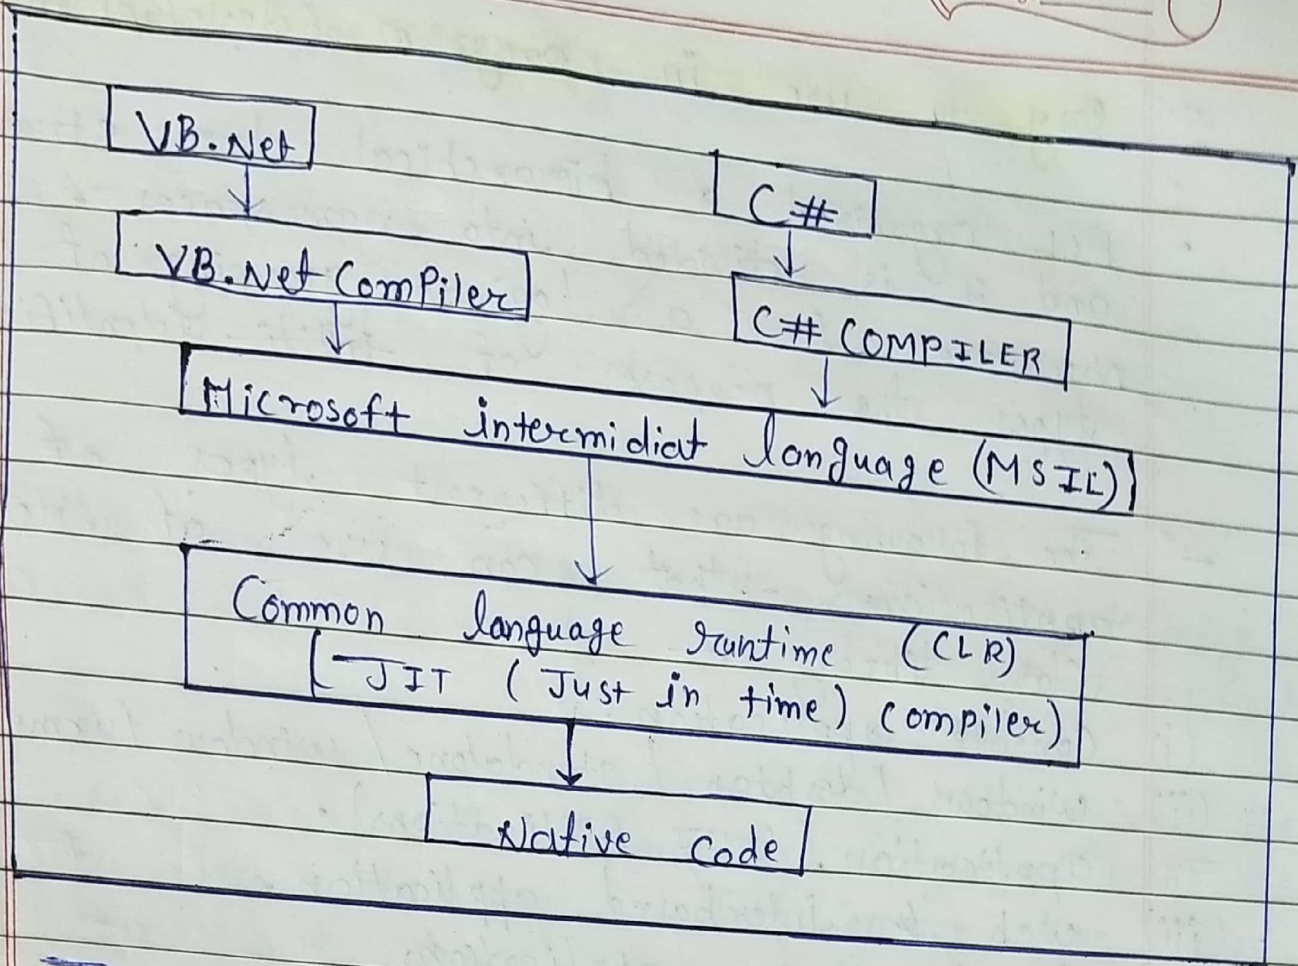 VB.Net
C#
VB.Net ComPiler
C# COMPILER
Microsoft intermidiat language (MSIL)
Common language runtime (CLR)
[-JIT (Just in time) compiler)
Native code